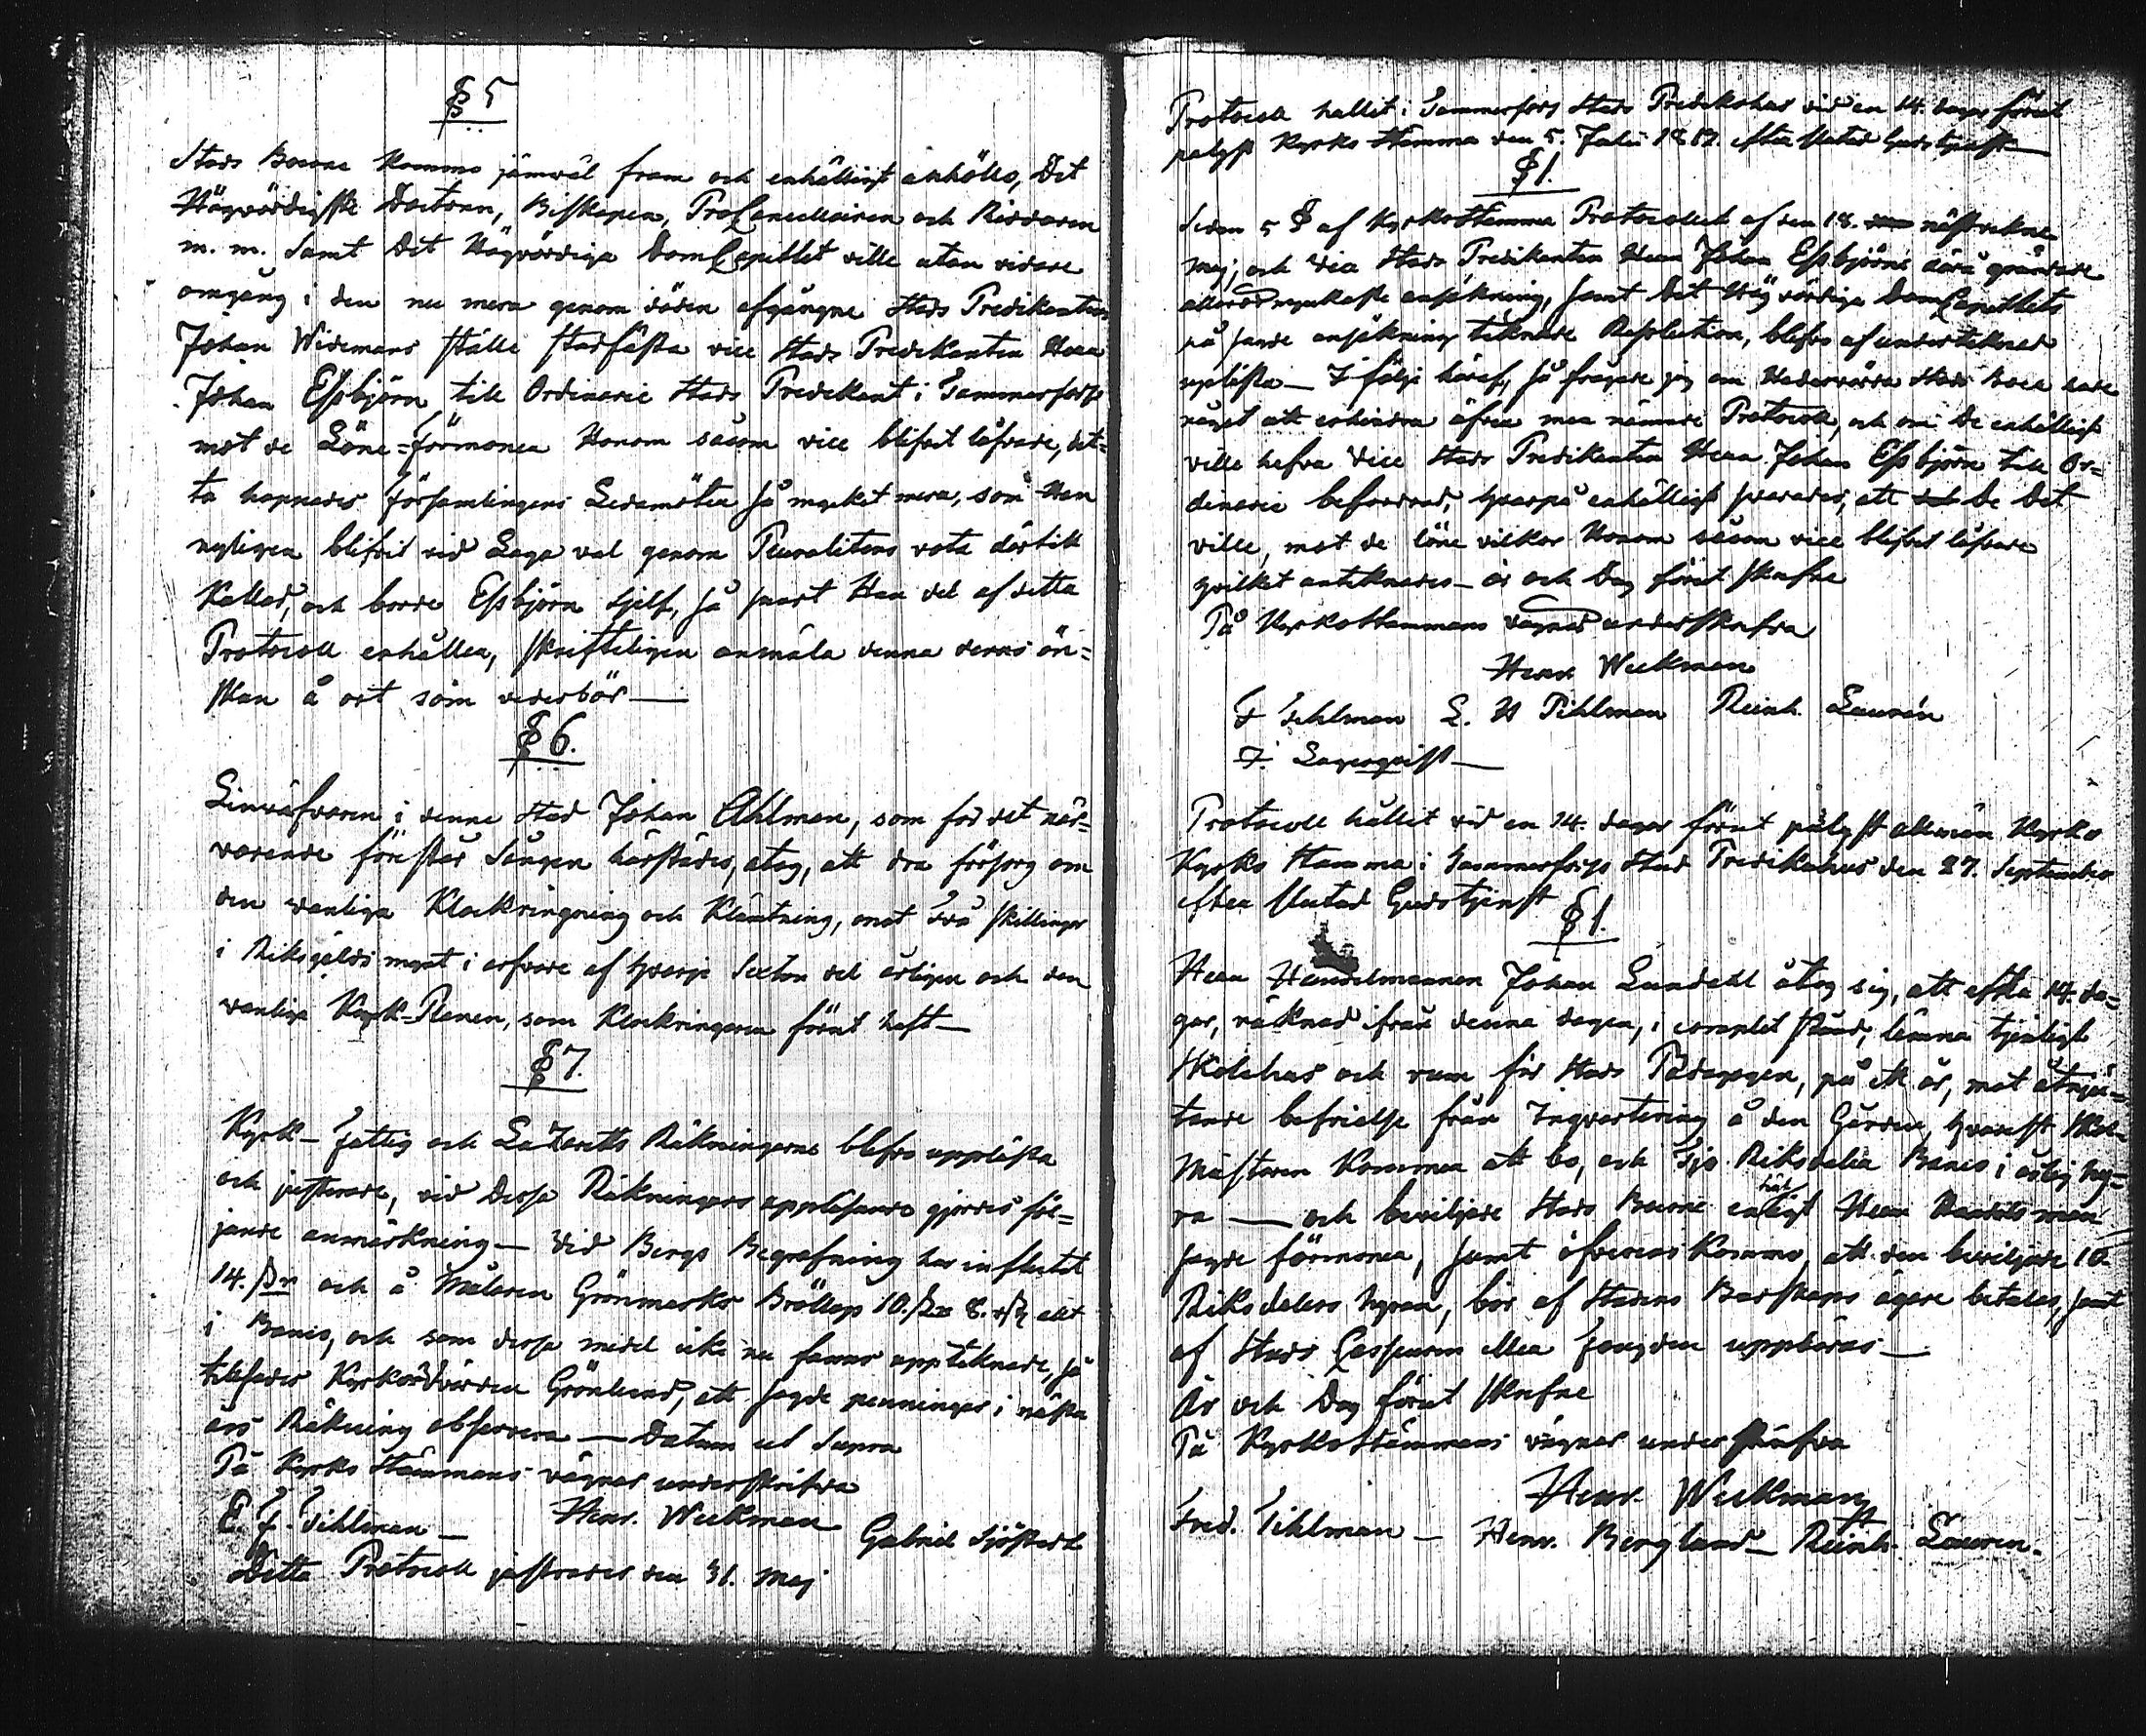 § 5
Stads Boerne komma jämväl fram och enhälligt anhölls, Det
Högvördigste Doctorn, Biskopen, ProCancellairen och Riddaren
m. m. samt Det Högvördiga DomCapitlet ville utan vidare
omgång i den nu mera genom döden afgångne Stads Predikanten
Johan Widemans ställe stadfästa vice Stads Predikanten Herr
Johan Essbjörn till Ordinarie Stads Predikant i Tammerfors
mot de Löne-förmoner Honom såsom vice blifvit läfvade, det-
ta hoppades församlingens Ledamöter så mycket mera, som Han
nyligen blifvit vid Laga val genom Pluralitens vota dertill
Kallad, och borde Essbjörn sjelf, så snart Han del af detta
Protocoll erhåller, skrifteligen anmäla denna deras ön-
skan å ort som vederbör —
§ 6.
Linväfvaren i denne Stad Johan Ahlman, som för det när-
varande förestår Sången härstädes, åtog, att dra försorg om
den vanliga Klockringning och Klämtning, mot två skillingar
i Riksgälds mynt i arfvode af hvarje Sexton del årligen och den
vanliga Kyrk-Renen, som Klockringaren förut haft —
§ 7.
Kyrk- Fattig och Lazaretts Räkningarne blefvo upplästa
och justerade, vid dessa Räkningars uppläsande gjordes föl-
jande anmärkning — Vid Bergs Begrafning har influtit
14. och å Målaren Grönmarks Bröllop 10. 8. allt
i Banco, och som dessa medel icke nu funnos upptecknade, så
tillsades Kyrkovärden Grönlund, att sagde penningar i nästa
års Räkning observera — Datum ut Supra
På Kyrko Stämmans vägnar underskrifva
E. F. Tihlman — Henr. Weckman Gabriel Sjöstedt
Detta Protocoll justerades den 31. Maj
Protocoll hållit i Tammerfors Stads Predikohus vid en 14. dagar förut
pålyst Kyrko Stämma den 5. Julii 1812. efter slutad Gudstjenst —
§ 1.
Sedan 5 § af KyrkoStämma Protocollet af den 18. nästvekne
Maj, och Vice Stads Predikanten Herr Johan Essbjörns därå grundade
allerödmjukaste ansökning, samt Det Högvördiga DomCapitlets
på sande ansökning teknade Resolution, blefvo af undertecknad
upläste — I följe häraf, så frågade jag om Hedervärda Stads Boer hade
något att erhindra öfver mer nämnde Protocoll, och om De enhälligt
ville hafva Vice Stads Predikanten Herr Johan Essbjörn till Or-
dinarie befordrad, hvarpå enhälligt svarades, att De Det
ville, mot de löne vilkor Honom såsom vice blifvit läfvade
hvilket antecknades — år och Dag förut skrefne
På Kyrkostämmans vägnar underskrifva
Henr. Weckman
F Tihlman L. H Pihlman Reinh. Laurén
J. Lagerqvist —
Protocoll hållit vid en 14. dagar förut pålyst allmän Kyrko
Kyrko Stämma i Tammerfors Stads Predikohus den 27. September
efter slutad Gudstjenst
§ 1.
Herr Handelmannen Johan Sundell åtog sig, att efter 14. da-
gar, räknad ifrån denna dagen, i complet stånd, lemna tjenligt
Skolehus och rum för Stads Pædagogen, på ett år, mot åtnju-
tande befrielse från Inqvartering å den Gården, hvarest Skol-
Mästaren Kommer att bo, och tjo Riksdaler Banco i årlig hy-
ra — och beviljade Stads Boerne enhälligt Herr
sagde förmoner, samt öfverens kommo, att den beviljade 10.
Riksdalers hyran, bör af Stadens Borskaps ägare betalas, samt
af Stads Casseuren eller Fougden uppbäras —
År och Dag förut skrefne
På KyrkoStämmans vägnar underskrifva
Henr. Weckman
Fred. Tihlman — Henr. Berglund — Reinh. Lauren.